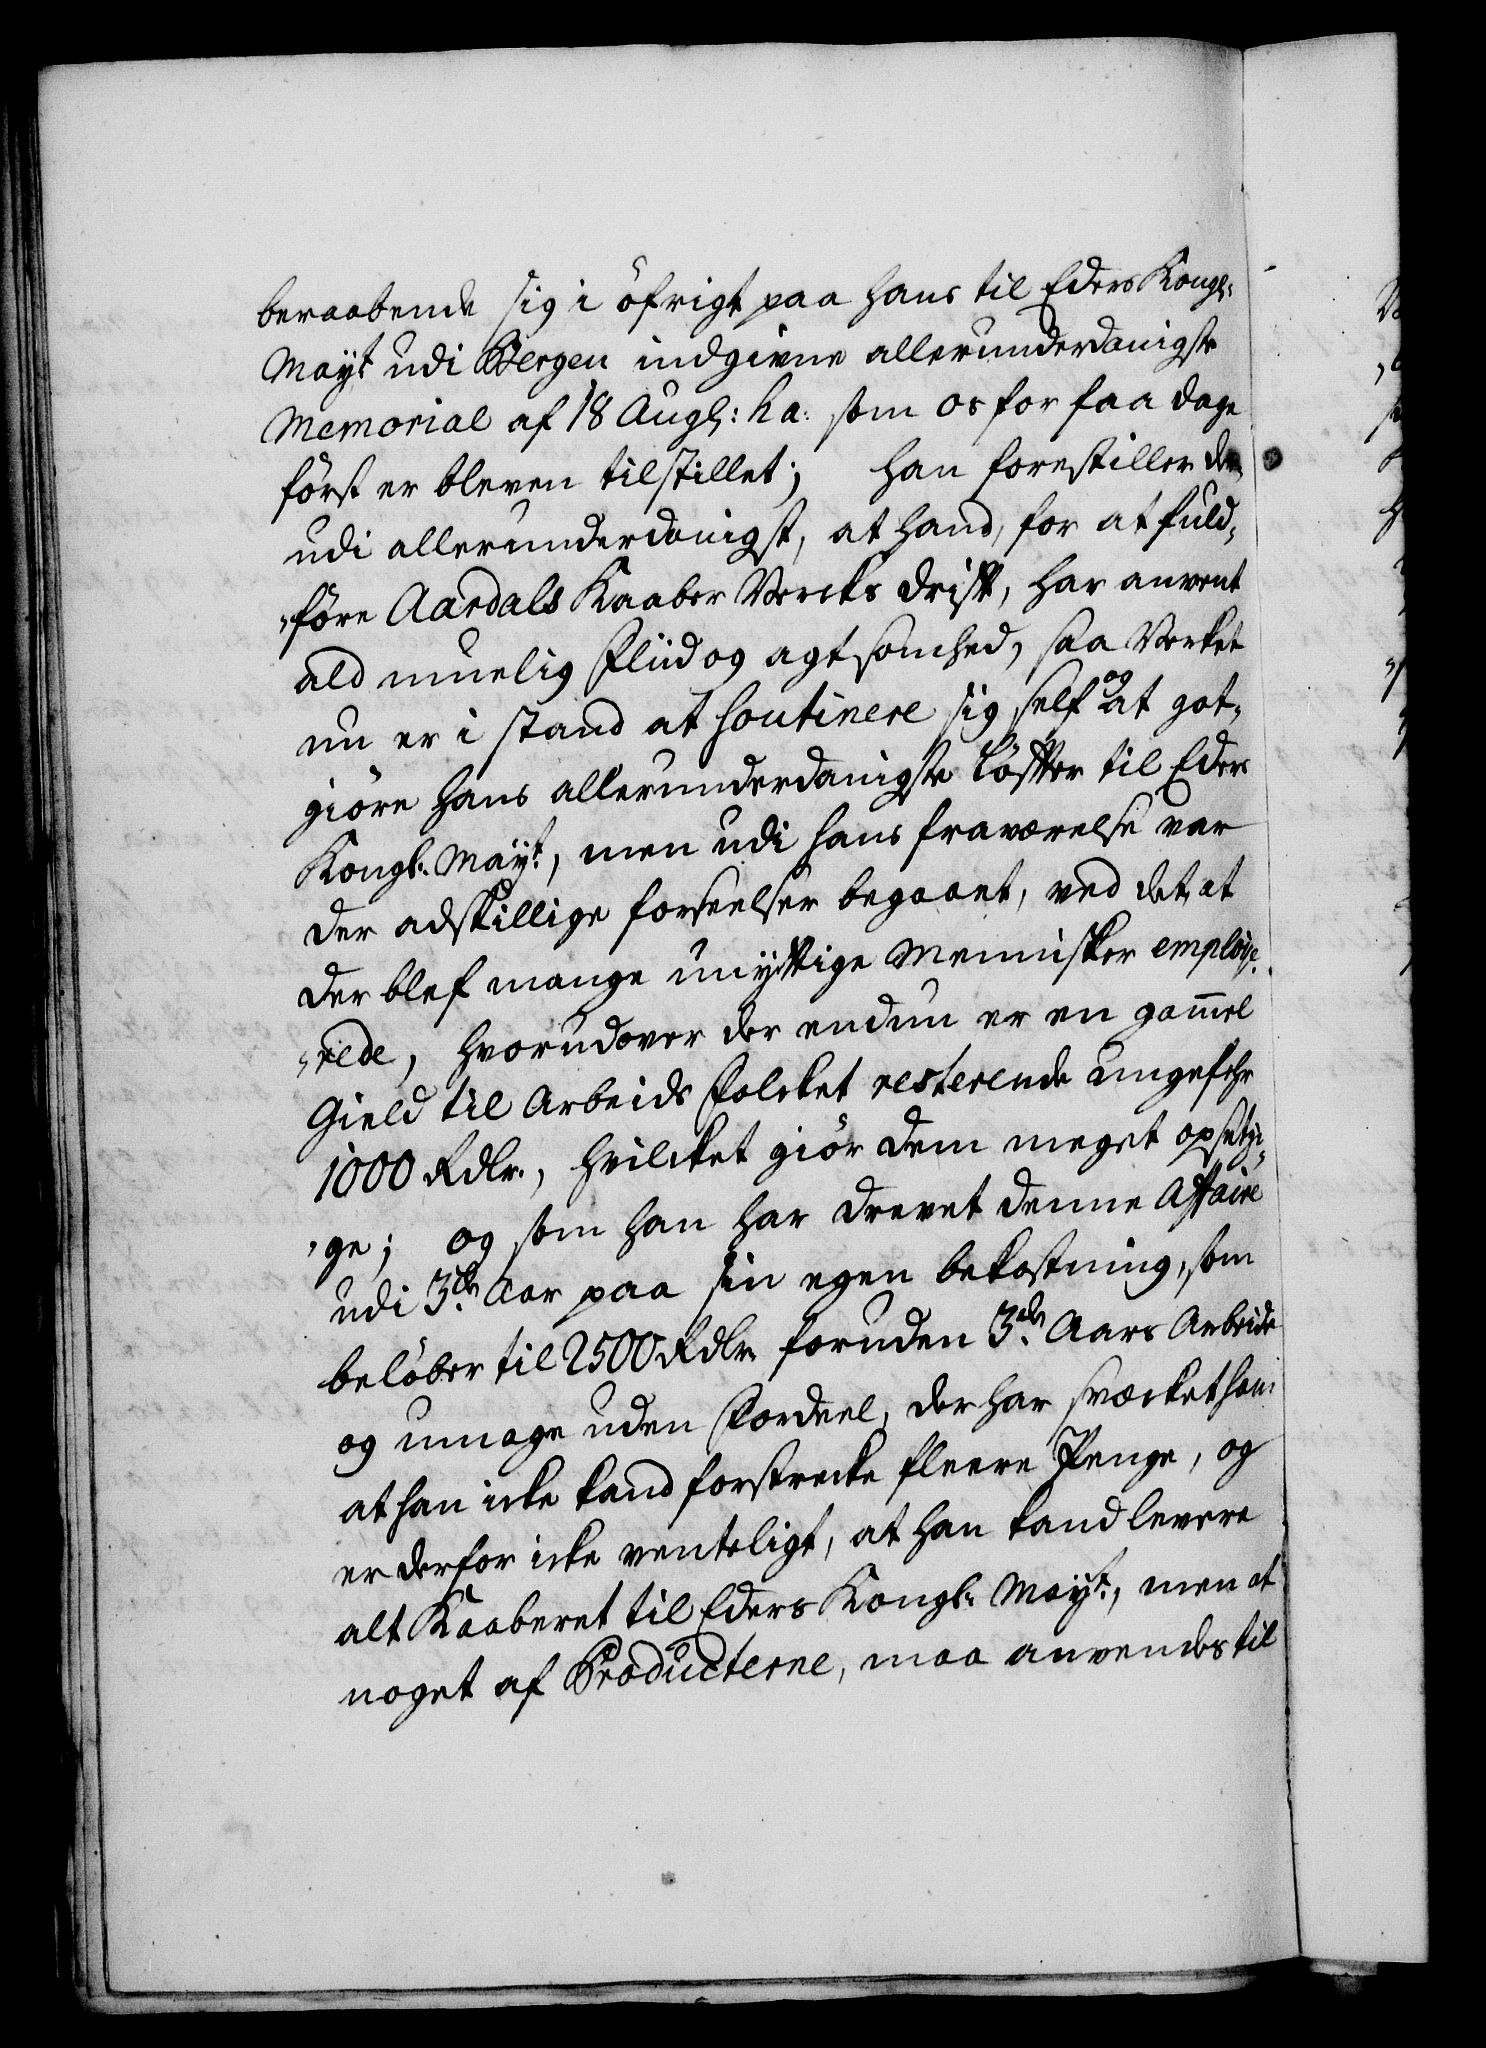 beraabende sig i öfrigt paa hans til Eders Kongl:
Mayt udi Bergen indgivne allerunderdanigste
Memorial af 18 Augl: h.a. som os for faa dage
först er bleven tilstillet; han forestiller der
udi allerunderdanigst, at hand, for at fuld-
„före Aardals Kaaber Vercks drift, har anvent
ald muelig Fliid og agtsomhed, saa Verket
nu er i stand at soutinere sig self og at got-
giöre hans allerunderdanigste Löfter til Eders
Kongl. Mayt., men udi hans fraværelse var
der adskillige forseelser begaaet, ved det, at
der blef mange unyttige Mennisker employe-
„rede, hvorudover der endnu er en gam̄el
Gield til Arbeids Folcket resterende ungefehr
1000 Rdlr., hvilcket giör dem meget opsetzi-
„ge; og som han har drevet denne Affaire
udi 3de Aar paa sin egen bekostning, som
belöber til 2500 Rdlr. foruden 3de Aars Arbeide
og umage uden Fordeel, der har svæcket ham
at han icke kand forstrecke fleere Penge, og
er derfor icke venteligt, at han kand levere
alt Kaaberet til Eders Kongl. Mayt., men at
noget af Producterne, maa anvendes til